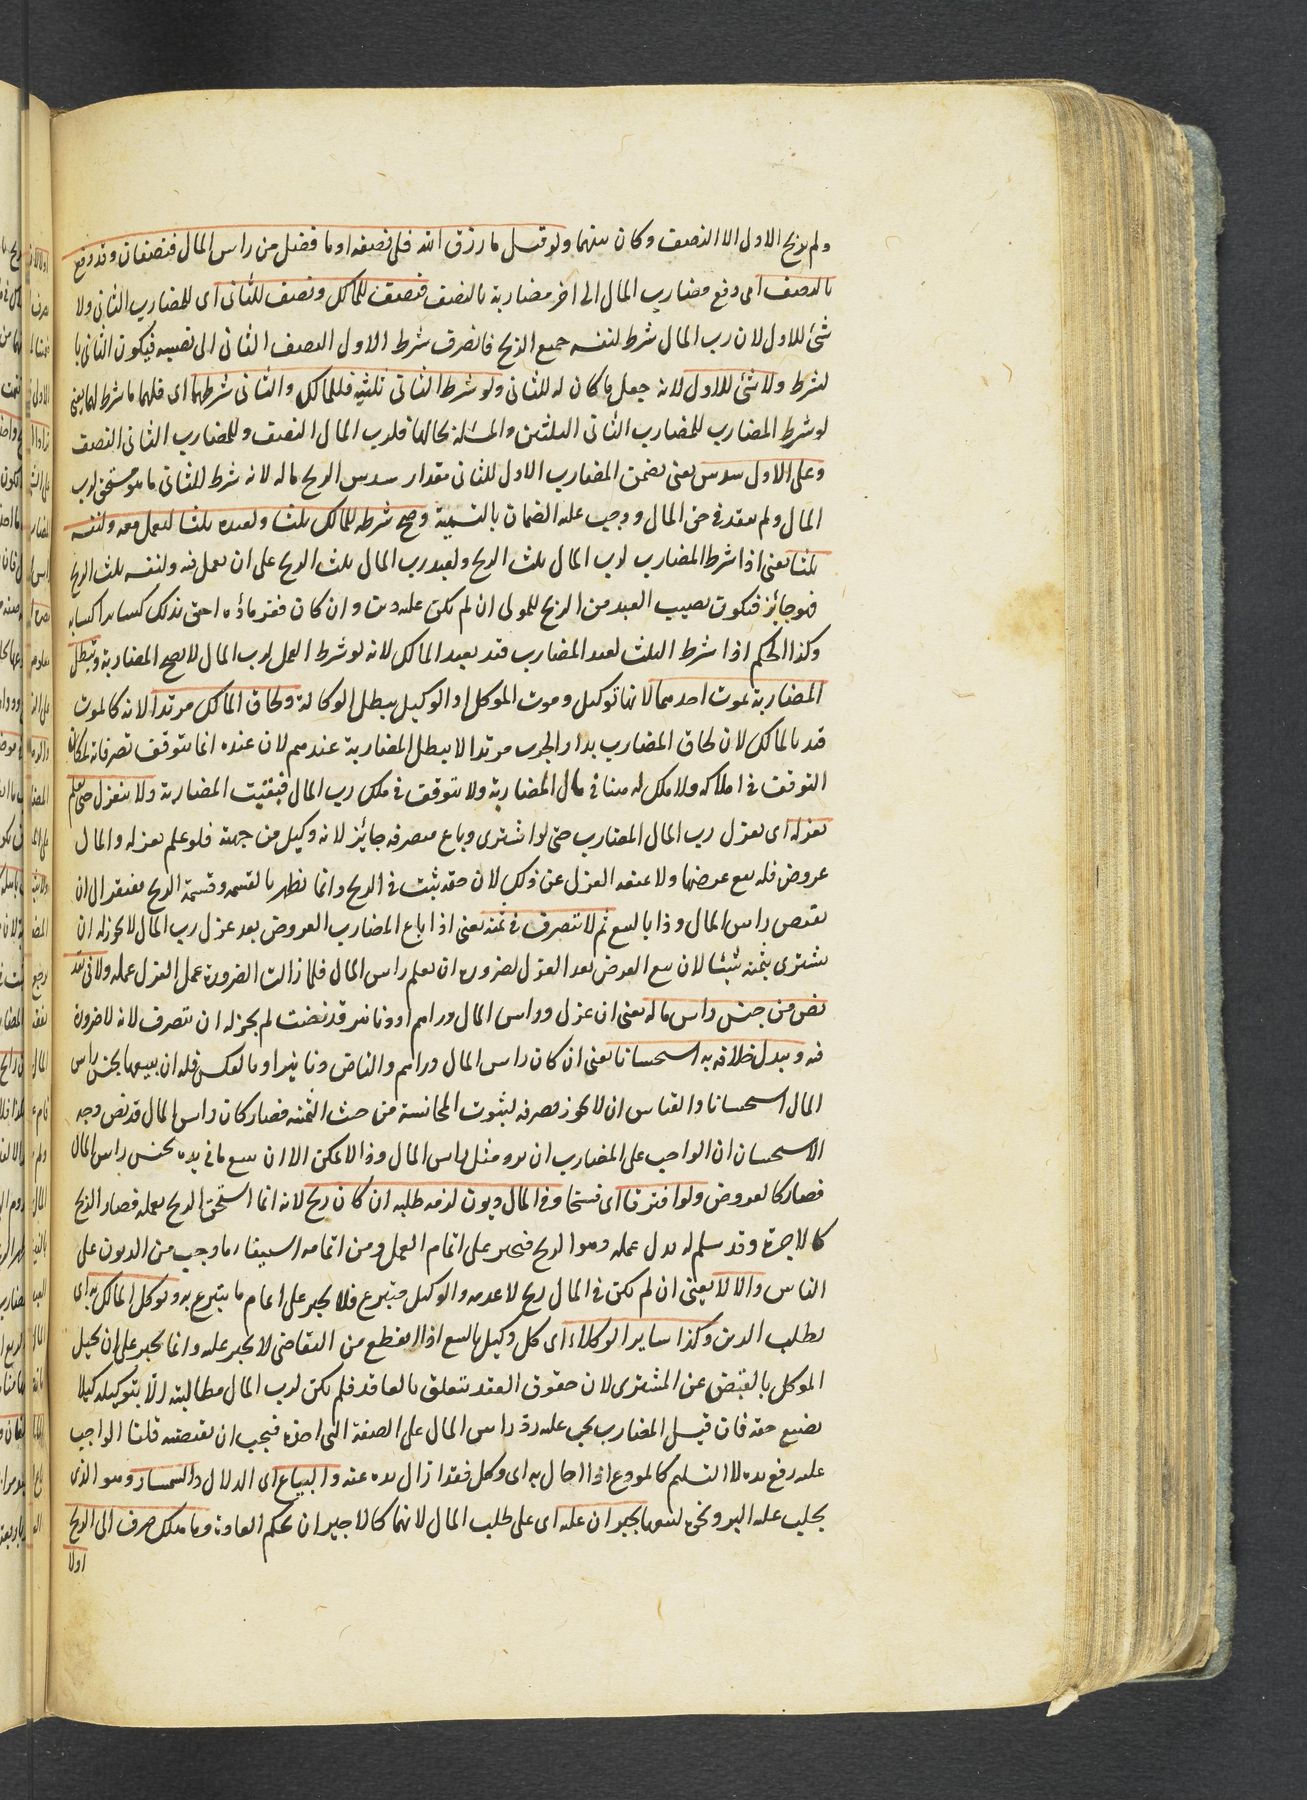 ولم يربح الاول الا النصف وكان بينهما ولو قيل ما رزق الله فلى نصفه او ما فضل من راس المال فنصفان وقد دفع
بالنصف اى دفع مضارب المال الى اخر مضاربة بالنصف فنصف للمالك ونصف للثانى اى للمضارب الثانى ولا
شئ للاول لان رب المال شرط لنفسه جميع الربح فانصرف شرط الاول النصف الثانى الى نصيبه فيكون الثانى با
لشرط ولا شئ للاول لانه جعل ما كان له للثانى ولو شرط الثانى ثلثيه فللمالك والثانى شرطهما اى فلهما ما شرط لهما يعنى
لو شرط المضارب للمضارب الثانى الثلثين والمسئلة بحالها فلرب المال النصف وللمضارب الثانى النصف
وعلى الاول سدس يعنى يضمن المضارب الاول للثانى مقدار سدس الربح ماله لانه شرط للثانى ما هو مستحق لرب
المال ولم ينفذ فى حق المال ووجب عليه الضمان بالتسمية وصح شرطه للمالك ثلثا ولعبده ثلثا ليعمل معه ولنفسه
ثلثا يعنى اذا شرط المضارب لرب المال ثلث الربح ولعبد رب المال ثلث الربح على ان يعمل فيه ولنفسه ثلث الربح
فهو جائز فيكون نصيب العبد من الربح للمولى ان لم يكن عليه دين وان كان فغرماؤه احق بذلك كسائر اكسابه
وكذا الحكم اذا شرط الثلث لعبد المضارب قيد بعبد المالك لانه لو شرط العمل لرب المال لا يصح المضاربة وتبطل
المضاربة بموت احدهما لانها توكيل وموت الموكل او الوكيل يبطل الوكالة ولحاق المالك مرتدا لانه كالموت
قيد بالمالك لان لحاق المضارب بدار الحرب مرتدا لا يبطل المضاربة عندهم لان عنده انما يتوقف تصرفاته لمكان
التوقف فى املاكه ولا ملك له هنا فى مال المضاربة ولا يتوقف فى ملك رب المال فبقيت المضاربة ولا ينعزل حتى يعلم
بعزله اى بعزل رب المال المضارب حتى لو اشترى وباع فتصرفه جائز لانه وكيل من جهته فلو علم بعزله والمال
عروض فله بيع عرضها ولا يمنعه العزل عن ذلك لان حقه يثبت فى الربح وانما يظهر بالقسمة وقسمة الربح يفتقر الى ان
يقبض راس المال وذا بالبيع ثم لا يتصرف فى ثمنه يعنى اذا باع المضارب العروض بعد عزل رب المال لا يجوز له ان
يشترى بثمنه شيئا لان بيع العرض بعد العزل لضرورة ان يعلم راس المال فلما زالت الضرورة عمل العزل عمله ولا فى نقد
نض من جنس راس ماله يعنى ان عزل وراس المال دراهم او دنانير قد نضت لم يجز له ان يتصرف لانه لا ضرورة
فيه ويبدل خلافه به استحسانا يعنى ان كان راس المال دراهم والناض دنانير او بالعكس فله ان يبيعها بجنس راس
المال استحسانا والقياس ان لا يجوز تصرفه لثبوت المجانسة من حيث الثمنية فصار كان راس المال قد نض وجه
الاستحسان ان الواجب على المضارب ان يرد مثل راس المال وذا لا يمكن الا ان يبيع ما فى يده بجنس راس المال
فصار كالعروض ولو افترقا اى فسخا وفى المال ديون لزمه طلبه ان كان ربح لانه انما استحق الربح بعمله فصار الربح
كالاجرة وقد سلم له بدل عمله وهو الربح فيجبر على اتمام العمل ومن اتمامه استيفاء ما وجب من الديون على
الناس والا لا يعنى ان لم يكن فى المال ربح لا عدمه والوكيل متبرع فلا يجبر على اتمام ما يتبرع به ويوكل المالك به اى
بطلب الدين وكذا ساير الوكلاء اى كل وكيل بالبيع اذا انقطع من التقاضى لا يجبر عليه وانما يجبر على ان يحيل
الموكل بالقبض عن المشترى لان حقوق العقد يتعلق بالعاقد فلم يكن لرب المال مطالبته الا بتوكيله كيلا
يضيع حقه فان قيل المضارب يجب عليه رد راس المال على الصفة التى اخذه فيجب ان يقبضه قلنا الواجب
عليه رفع يده لا التسليم كالمودع اذا احال به اى وكل فقد ازال يده عنه والبياع اى الدلال والسمسار وهو الذى
يجلب عليه البر ونحوه ليبيعها يجبران عليه اى على طلب المال لانهما كالاجيران بحكم العادة وما هلك صرف الى الربح
اولا